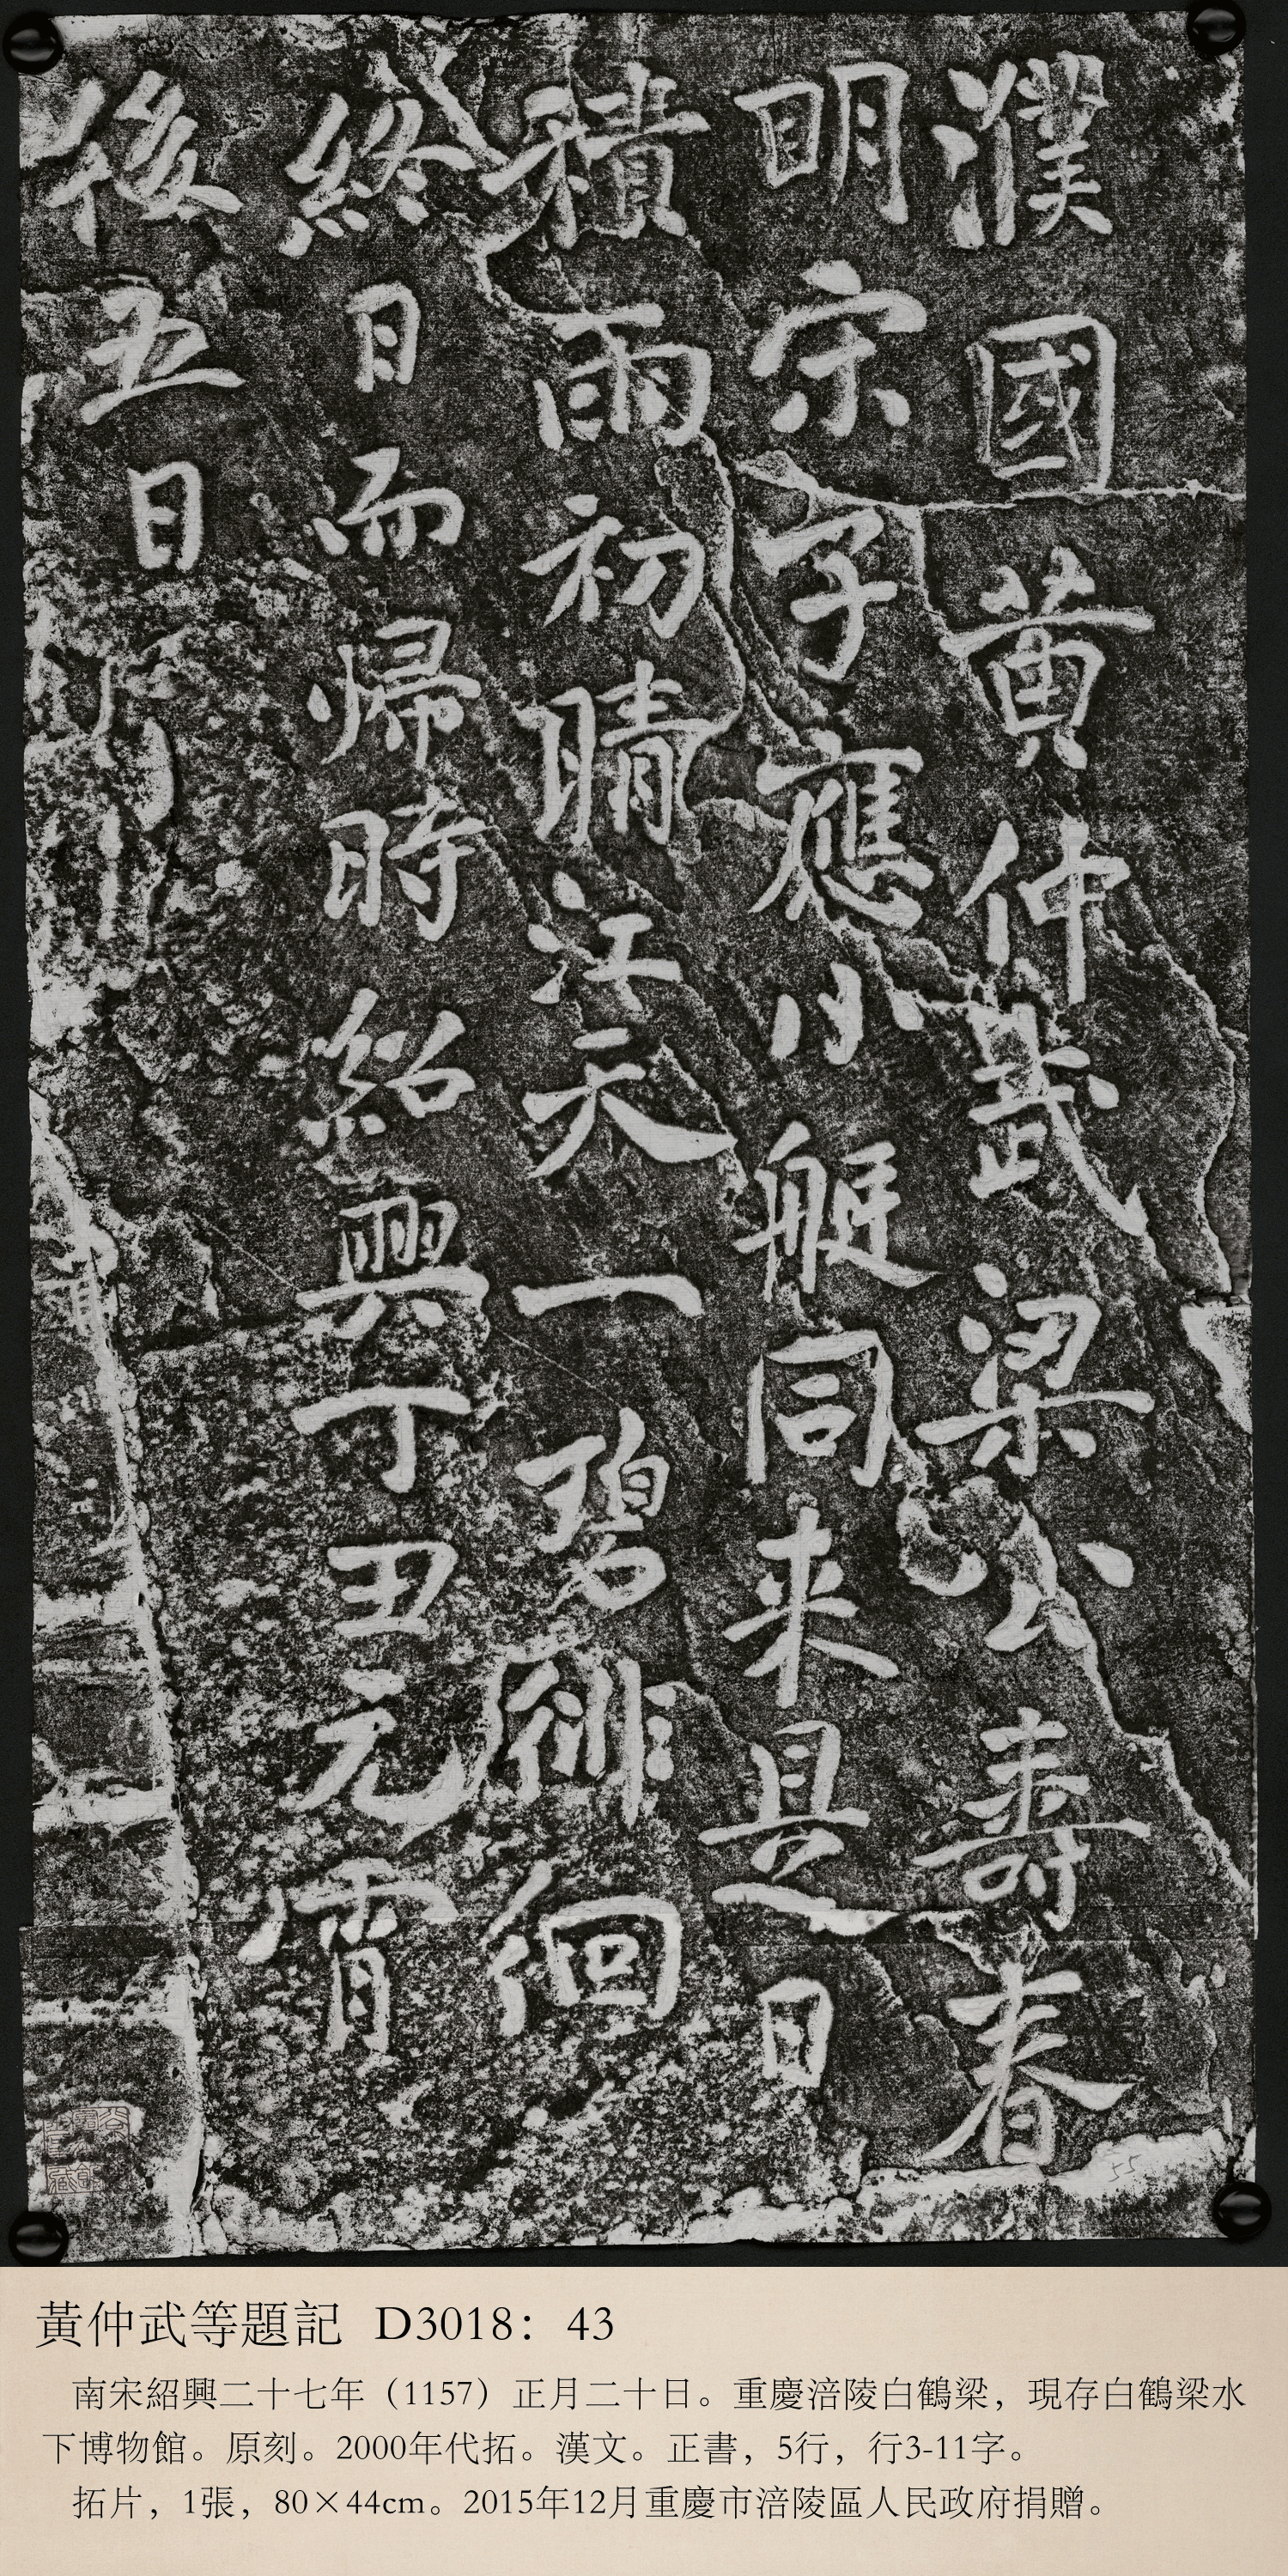 濮國黄仲武梁公壽春
明宗子應小艇同来是日
積雨初晴江天一碧徘徊
終日而歸時紹興丁丑元宵
後五日
55
黃仲武等題記 D3018：43
南宋紹興二十七年（1157）正月二十日。重慶涪陵白鶴梁，現存白鶴梁水
下博物館。原刻。2000年代拓。漢文。正書，5行，行3-11字。
拓片，1張，80×44cm。2015年12月重慶市涪陵區人民政府捐贈。